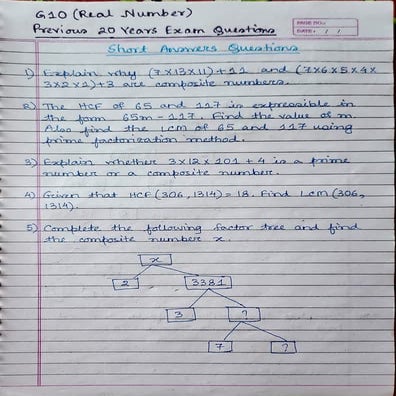 G10 (Real Number)
Previous 20 Years Exam Questions
PAGE NO.:
DATE: / /
Short Answers Questions
1) Explain why (7×13×11)+11 and (7×6×5×4×
3×2×1)+3 are composite numbers.
2) The HCF of 65 and 117 is expressible in
the form 65m - 117. Find the value of m.
Also find the LCM of 65 and 117 using
prime factorization method.
3) Explain whether 3×12×101+4 is a prime
number or a composite number.
4) Given that HCF (306, 1314) = 18. Find LCM (306,
1314).
5) Complete the following factor tree and find
the composite number x.
x
2 3381
3 ?
7 ?